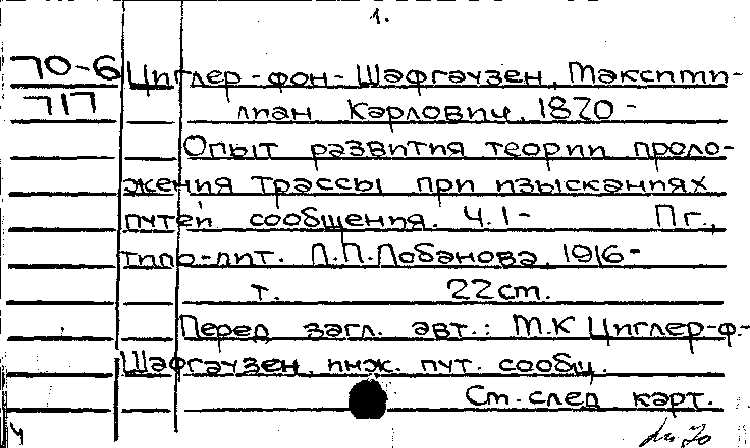 1.
70-6 Циглер-фон-Шафгаузен, Максими-
717 лиан Карлович, 1870-
Опыт развития теории проло-
жения трассы при изысканиях
путей сообщения. Ч.1- Пг.,
типо-лит. Л.П.Лобанова, 1916-
т. 22 cm.
Перед загл. авт.: М.К Циглер-ф.-
Шафгаузен, инж. пут. сообщ.
См. след карт.